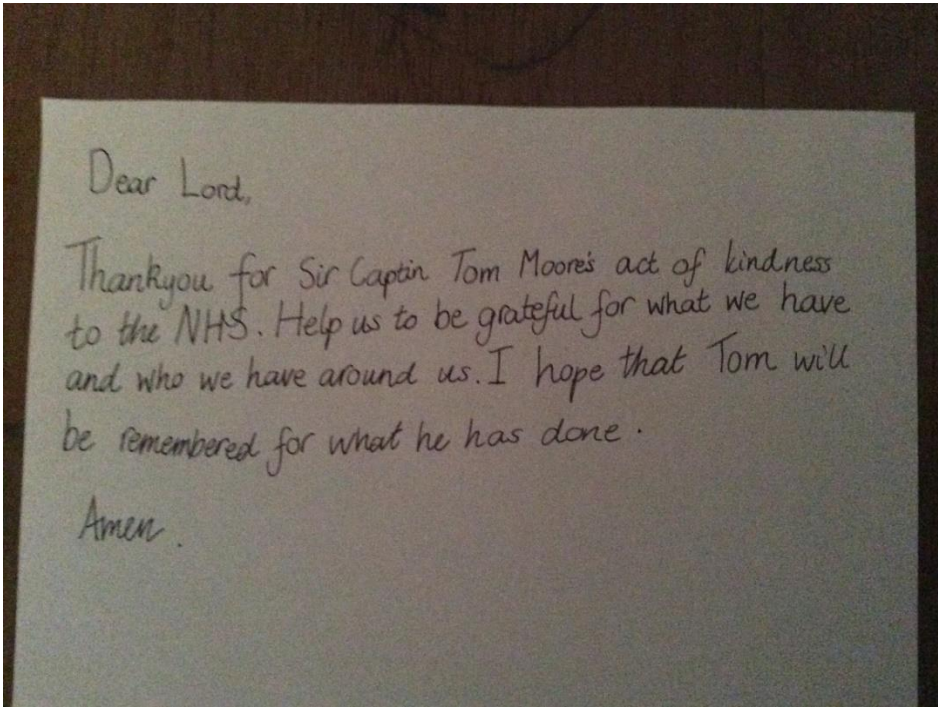 Dear Lord,
Thankyou for Sir Captin Tom Moore's act of kindness
to the NHS. Help us to be grateful for what we have
and who we have around us. I hope that Tom will
be remembered for what he has done.
Amen.